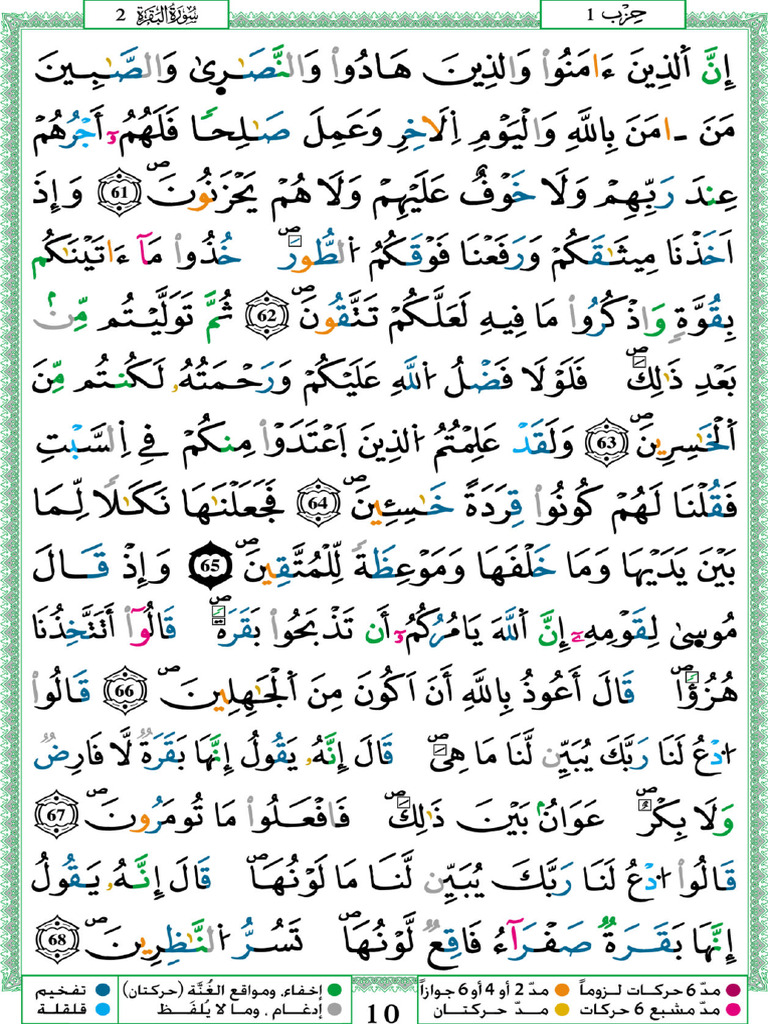 سُورَةُ البَقَرَةِ 2
حِزْب 1
إِنَّ اَ۬لذِينَ ءَامَنُواْ وَالذِينَ هَادُواْ وَالنَّصَٰرِىٰ وَالصَّٰبِينَ
مَنَ ـ امَنَ بِاللَّهِ وَالْيَوْمِ اِ۬لَاخِرِ وَعَمِلَ صَٰلِحاٗ فَلَهُمُۥٓ أَجْرُهُمْ
عِندَ رَبِّهِمْ وَلَا خَوْفٌ عَلَيْهِمْ وَلَا هُمْ يَحْزَنُونَۖ 61 وَإِذَ
اَخَذْنَا مِيثَٰقَكُمْ وَرَفَعْنَا فَوْقَكُمُ اُ۬لطُّورَۖ خُذُواْ مَآ ءَاتَيْنَٰكُم
بِقُوَّةٖ وَاذْكُرُواْ مَا فِيهِ لَعَلَّكُمْ تَتَّقُونَۖ 62 ثُمَّ تَوَلَّيْتُم مِّنۢ
بَعْدِ ذَٰلِكَۖ فَلَوْلَا فَضْلُ اُ۬للَّهِ عَلَيْكُمْ وَرَحْمَتُهُۥ لَكُنتُم مِّنَ
اَ۬لْخَٰسِرِينَۖ 63 وَلَقَدْ عَلِمْتُمُ اُ۬لذِينَ اَ۪عْتَدَوْاْ مِنكُمْ فِے اِ۬لسَّبْتِ
فَقُلْنَا لَهُمْ كُونُواْ قِرَدَةً خَٰسِـِٕينَۖ 64 فَجَعَلْنَٰهَا نَكَٰلاٗ لِّمَا
بَيْنَ يَدَيْهَا وَمَا خَلْفَهَا وَمَوْعِظَةٗ لِّلْمُتَّقِينَۖ 65 وَإِذْ قَالَ
مُوسِىٰ لِقَوْمِهِۦٓ إِنَّ اَ۬للَّهَ يَامُرُكُمُۥٓ أَن تَذْبَحُواْ بَقَرَةٗۖ قَالُوٓاْ أَتَتَّخِذُنَا
هُزُؤاٗۖ قَالَ أَعُوذُ بِاللَّهِ أَنَ اَكُونَ مِنَ اَ۬لْجَٰهِلِينَۖ 66 قَالُواْ
اُ۟دْعُ لَنَا رَبَّكَ يُبَيِّن لَّنَا مَا هِيَۖ قَالَ إِنَّهُۥ يَقُولُ إِنَّهَا بَقَرَةٞ لَّا فَارِضٞ
وَلَا بِكْرٌۖ عَوَانُۢ بَيْنَ ذَٰلِكَۖ فَافْعَلُواْ مَا تُومَرُونَۖ 67
قَالُواْ اُ۟دْعُ لَنَا رَبَّكَ يُبَيِّن لَّنَا مَا لَوْنُهَاۖ قَالَ إِنَّهُۥ يَقُولُ
إِنَّهَا بَقَرَةٞ صَفْرَآءُ فَاقِعٞ لَّوْنُهَاۖ تَسُرُّ اُ۬لنَّٰظِرِينَۖ 68
مدّ 6 حركات لزوماً مدّ 2 أو 4 أو 6 جوازاً
مدّ مشبع 6 حركات مدّ حركتان
10
إخفاء، ومواقع الغُنَّة (حركتان) تفخيم
إدغام ، وما لا يُلفَظ قلقلة